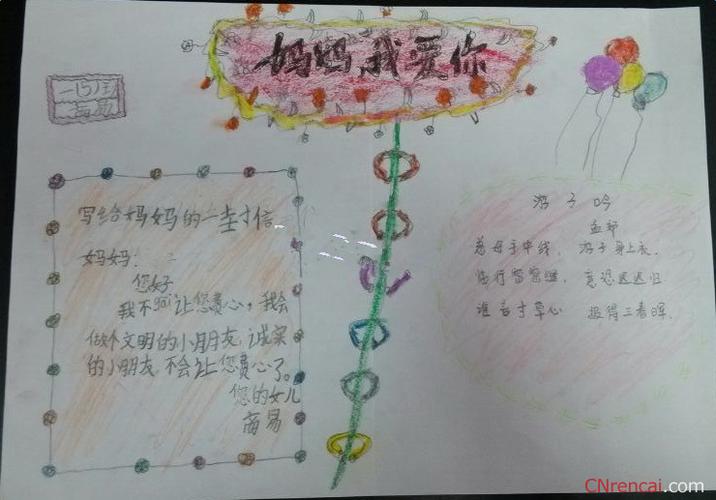 妈妈我爱你
一(5)班
商易
写给妈妈的一封信
妈妈:
您好
我不让您费心,我会
做个文明的小朋友,诚实
的小朋友,不会让您费心了。
您的女儿
商易
游子吟
孟郊
慈母手中线, 游子身上衣.
临行密密缝, 意恐迟迟归
谁言寸草心 报得三春晖.
CNrencai.com